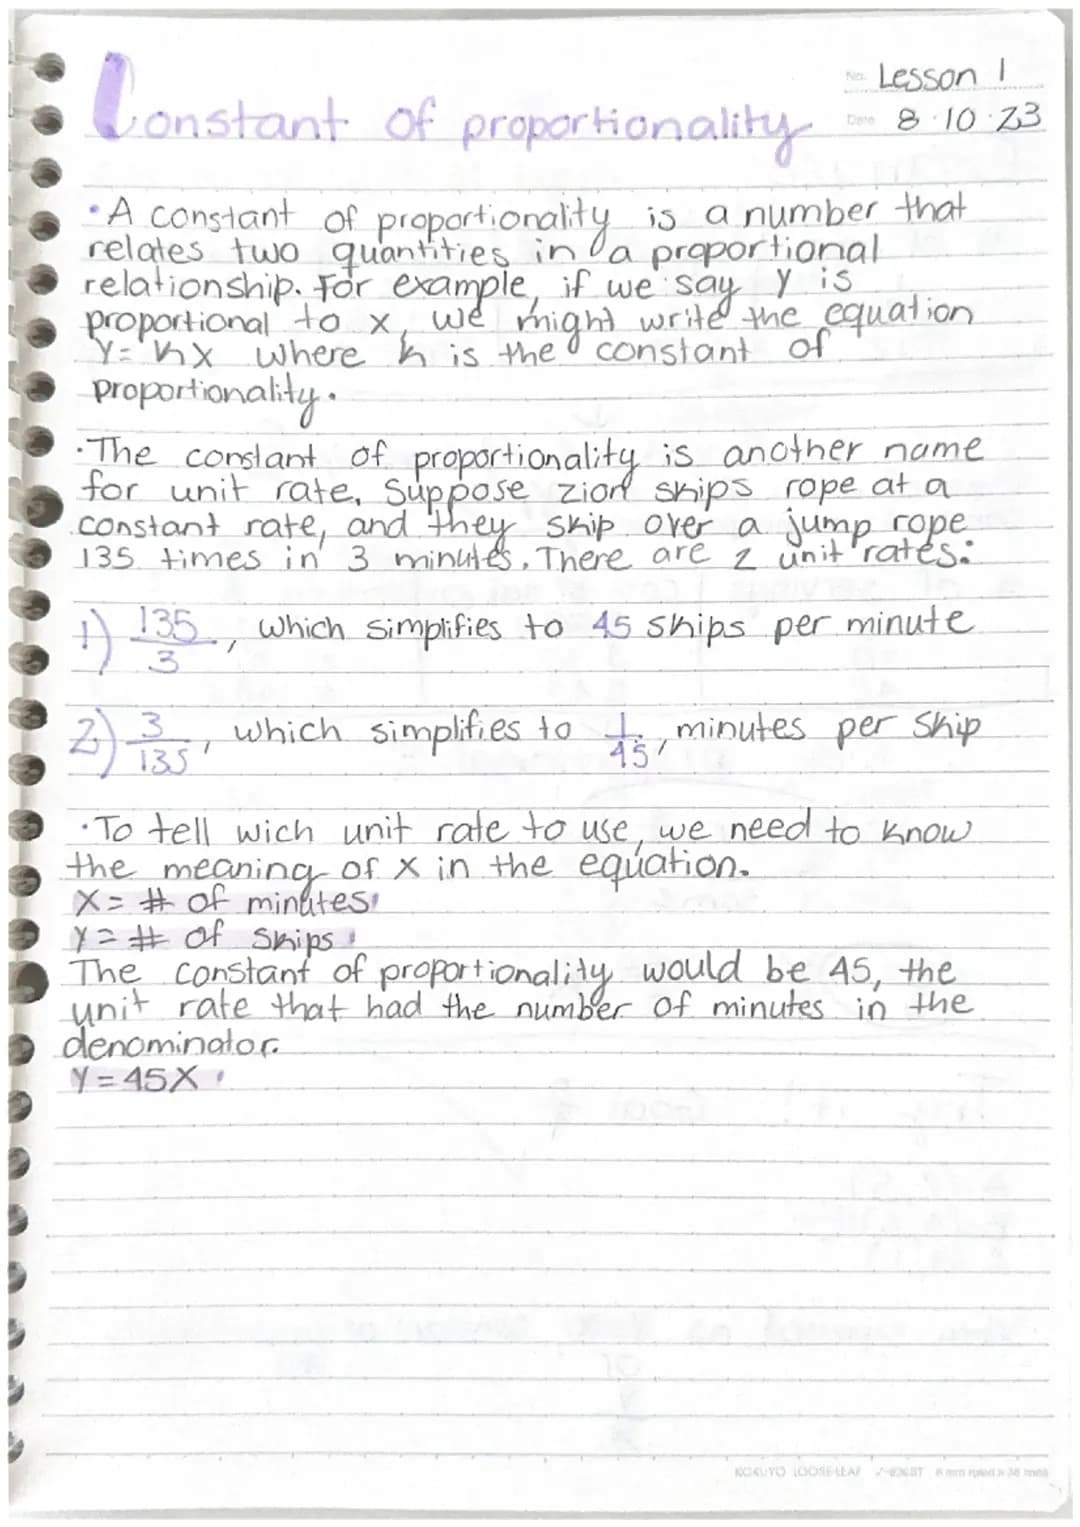 No. Lesson 1
Constant of proportionality Date 8·10·23
·A constant of proportionality is a number that
relates two quantities in a proportional
relationship. For example, if we say y is
proportional to x, we might write the equation
Y= kx where k is the constant of
proportionality.
·The constant of proportionality is another name
for unit rate. Suppose zion skips rope at a
constant rate, and they skip over a jump rope
135 times in 3 minutes. There are 2 unit rates:
1) 135/3, which simplifies to 45 skips per minute
2) 3/135, which simplifies to 1/45, minutes per skip
·To tell wich unit rate to use, we need to know
the meaning of x in the equation.
X= # of minutes
Y= # of skips
The constant of proportionality would be 45, the
unit rate that had the number of minutes in the
denominator.
Y=45X
KOKUYO LOOSE-LEAF